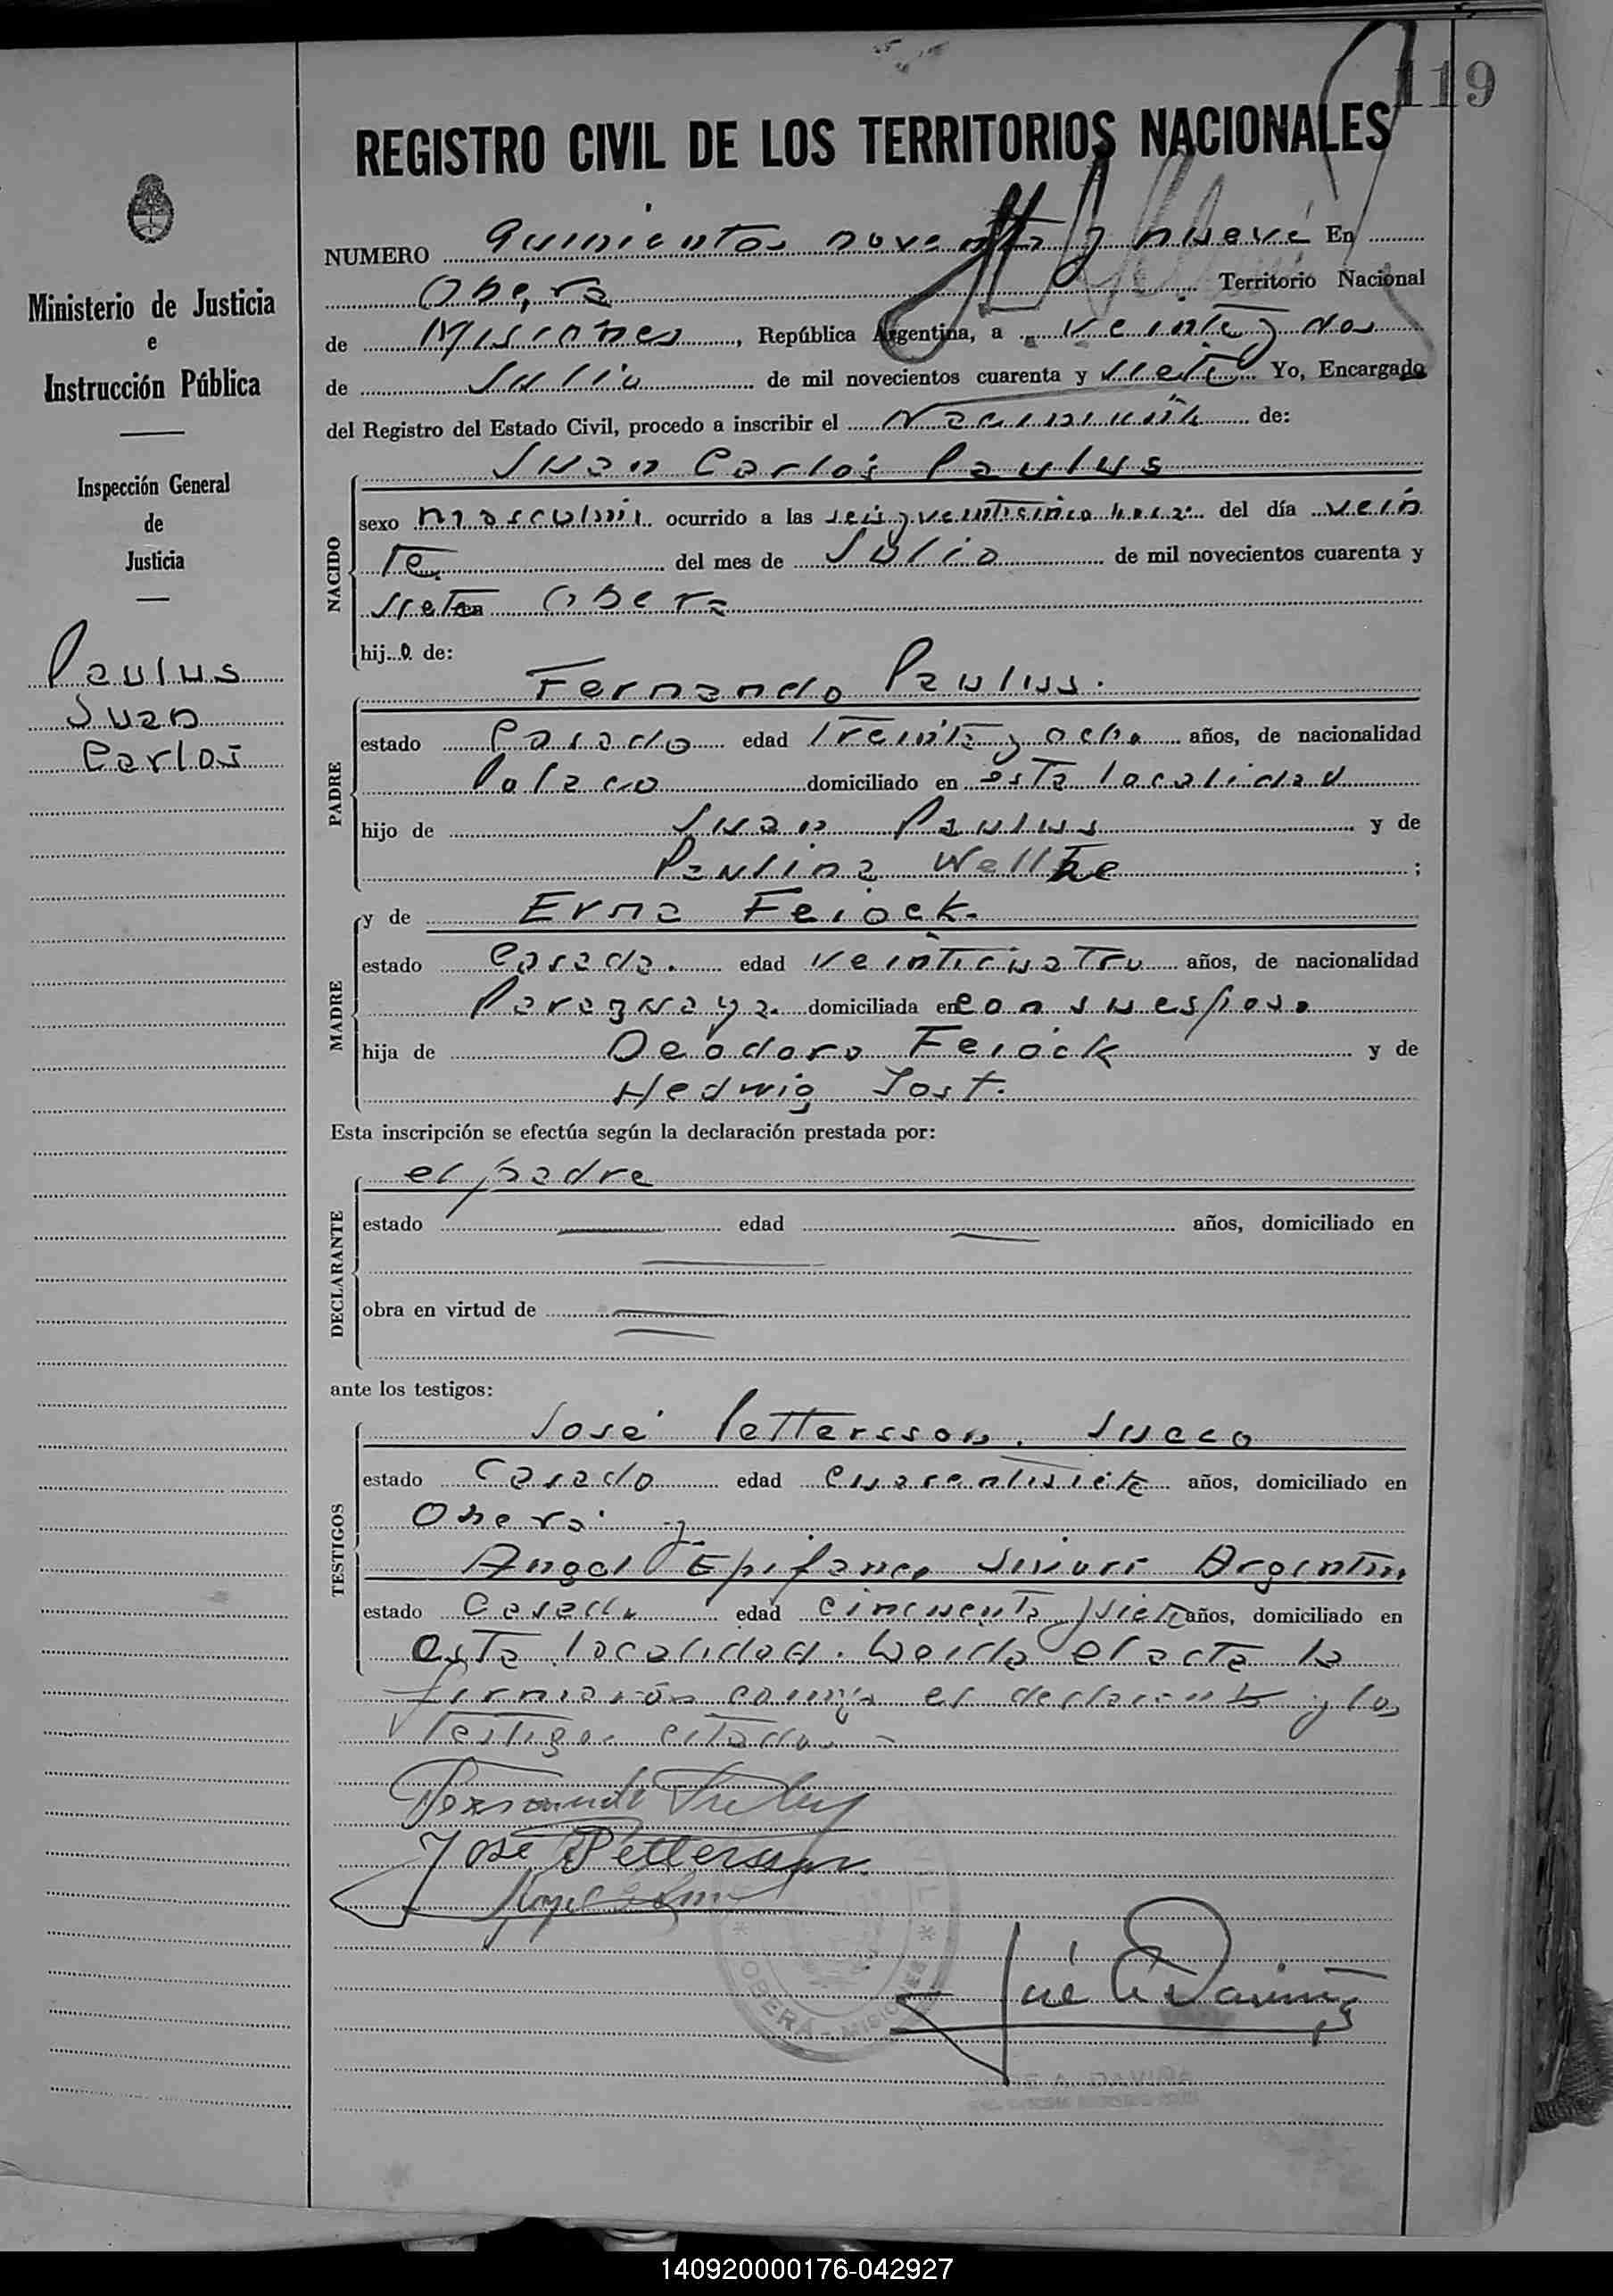 119
REGISTRO CIVIL DE LOS TERRITORIOS NACIONALES
NUMERO Quinientos noventa y nueve En
Oberá Territorio Nacional
de Misiones, República Argentina, a veinte y dos
de Julio de mil novecientos cuarenta y siete Yo, Encargado
del Registro del Estado Civil, procedo a inscribir el Nacimiento de:
Juan Carlos Paulus
NACIDO
sexo masculino ocurrido a las seis y veinticinco horas del día vein
te del mes de Julio de mil novecientos cuarenta y
siete en Obera
hijo de:
Fernando Paulus.
PADRE
estado Casado edad treinta y ocho años, de nacionalidad
Polaco domiciliado en esta localidad
hijo de Juan Paulus y de
Paulina Wellke;
y de Erna Feiock.
MADRE
estado Casada. edad veinticuatro años, de nacionalidad
Paraguaya. domiciliada en con su esposo
hija de Deodoro Feiock y de
Hedwig Jost.
Esta inscripción se efectúa según la declaración prestada por:
el padre
DECLARANTE
estado edad años, domiciliado en
obra en virtud de
ante los testigos:
José Pettersson. Sueco
TESTIGOS
estado Casado edad cuarentisiete años, domiciliado en
Oberá y
Angel Epifanio Argentino
estado Casado edad cincuenta y siete años, domiciliado en
esta localidad. Leida el acta la
firmaron conmigo el declarante y los
testigos citados
José Pettersson
OBERÁ - MISIONES
Ministerio de Justicia
e
Instrucción Pública
Inspección General
de
Justicia
Paulus
Juan
Carlos
140920000176-042927